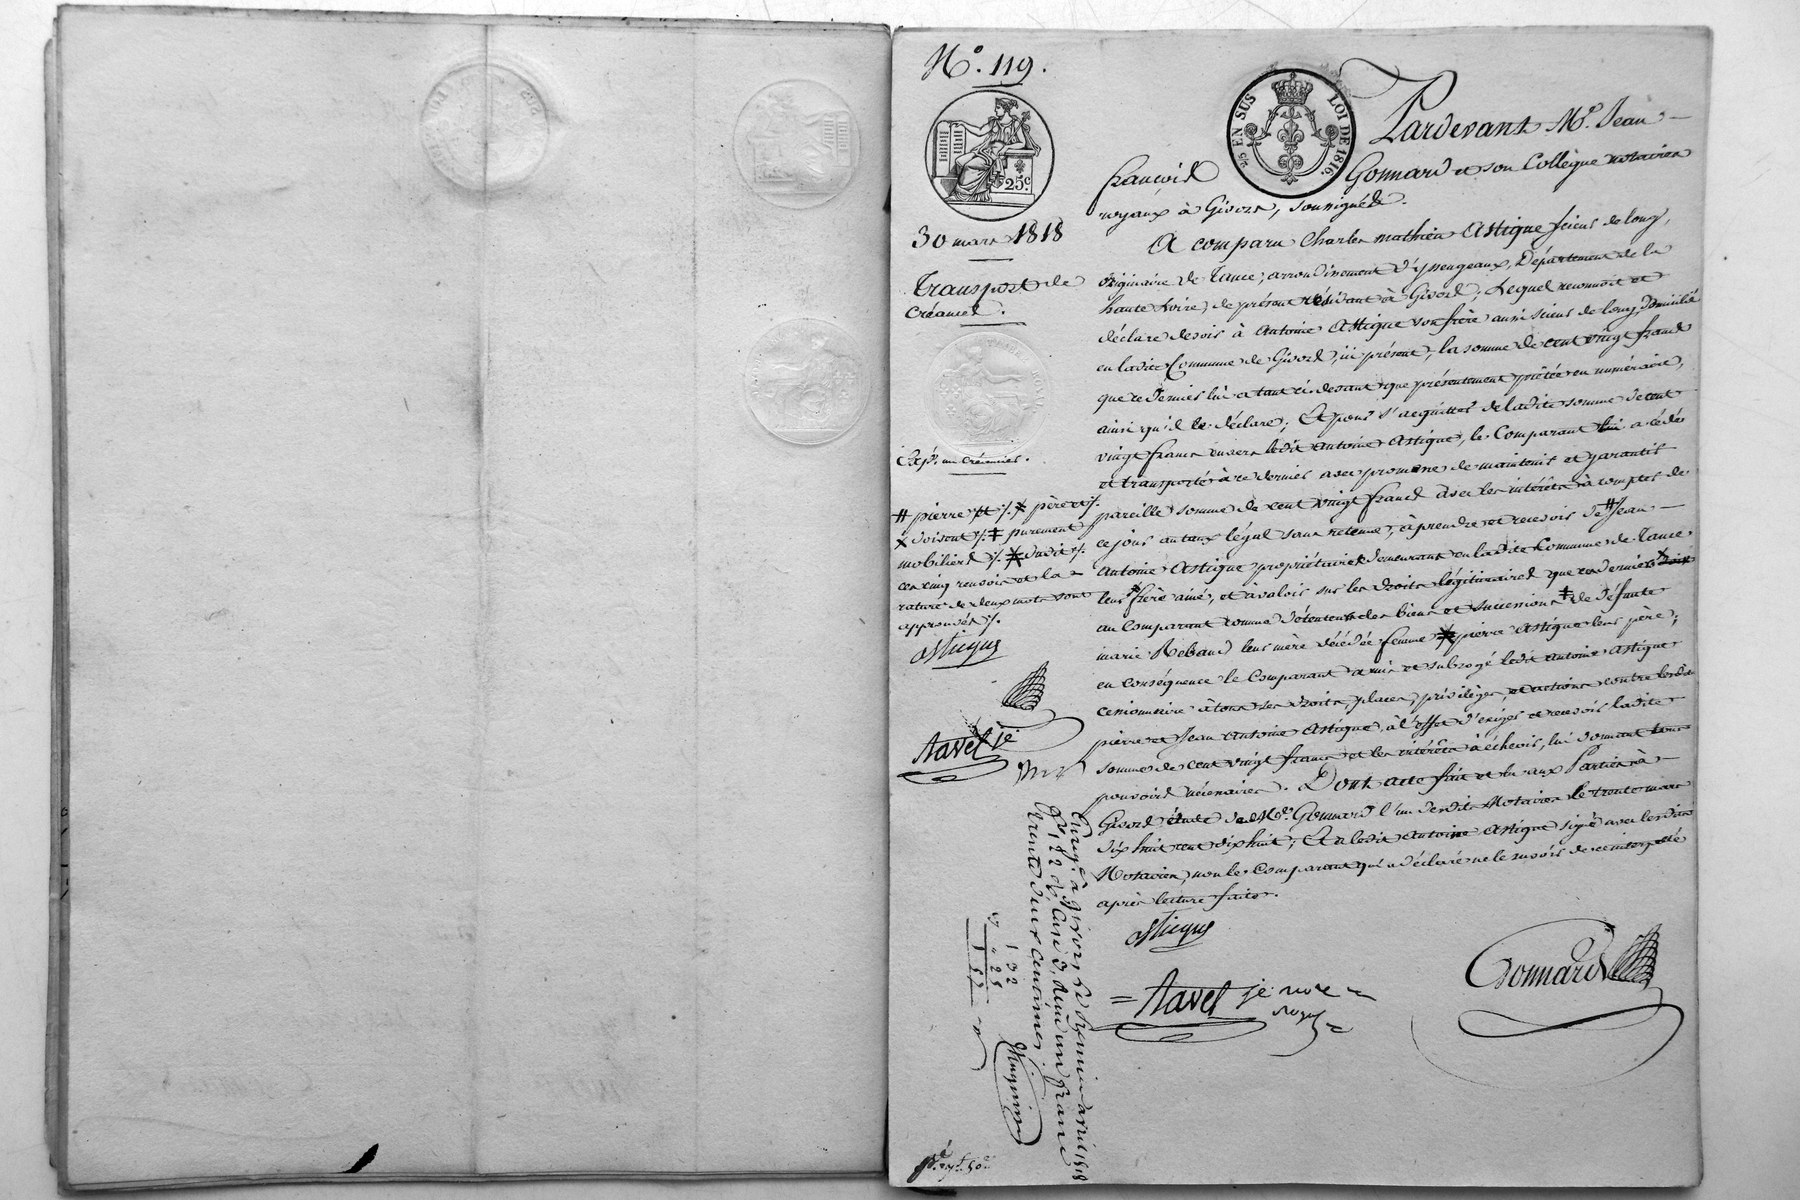 N.º 119.
25c
30 mars 1818
Transport de
créances.
Exp. au créancier.
# pierre et /. ⚹ père et /.
x doivent /. ‡ purement
mobiliers /. ⚹ dudit /.
ces cinq renvois et la
rature de deux mots sont
approuvés /.
astique
Ravel je
EN SUS
LOI DE 1816.
Pardevant M.e Jean
françois Gonnard et son Collègue notaires
royaux à Givors, soussignés.
A comparu Charles mathieu Astique scieur de long,
originaire de Tance, arrondissement d'yssengeaux, Département de la
haute Loire, de présent résidant à Givors; Lequel reconnoit et
déclare devoir à Antoine Astique son frère aussi scieur de long, Domicilié
en ladite Commune de Givors, ici présent, la somme de cent vingt francs
que ce dernier lui a tant ci devant que présentement prêtée en numéraire,
ainsi qu'il le déclare; Et pour s'acquitter de ladite somme de cent
vingt francs envers ledit Antoine Astique, le Comparant lui a cédé
et transporté à ce dernier avec promesse de maintenir et garantir
pareille somme de cent vingt francs avec les intérêts à compter de
ce jour au taux légal sans retenue, à prendre et recevoir de # Jean
Antoine Astique propriétaires demeurant en ladite Commune de Tance
leur ⚹ frère ainé, et à valoir sur les droits légitimaires que ces derniers x
au Comparant comme détenteurs des biens et successions ‡ de défunte
marie Rebaud leur mère décédée femme ⚹ pierre Astique leur père;
en conséquence le Comparant a mis et subrogé ledit Antoine Astique
cessionnaire à tous ses droits, places, privilèges, et actions contre lesdits
pierre et Jean Antoine Astique, à l'effet d'exiger et recevoir ladite
somme de cent vingt francs et les intérêts à échevoir, lui donnant tous
pouvoirs nécessaires. Dont acte fait et lu aux Parties à
Givors étude de M.e Gonnard l'un desdits Notaires le trente mars
dix huit cent dix huit; Et a ledit Antoine Astique signé avec lesdits
Notaires, non le Comparant qui a déclaré ne le savoir de ce interpellé
après lecture faite.
astique
Gonnard
Ravel je
Enreg.é à givors le premier avril 1818
f.º 122 v.º Case 3, reçu un franc
trente deux centimes
1 32
" 25
1 57